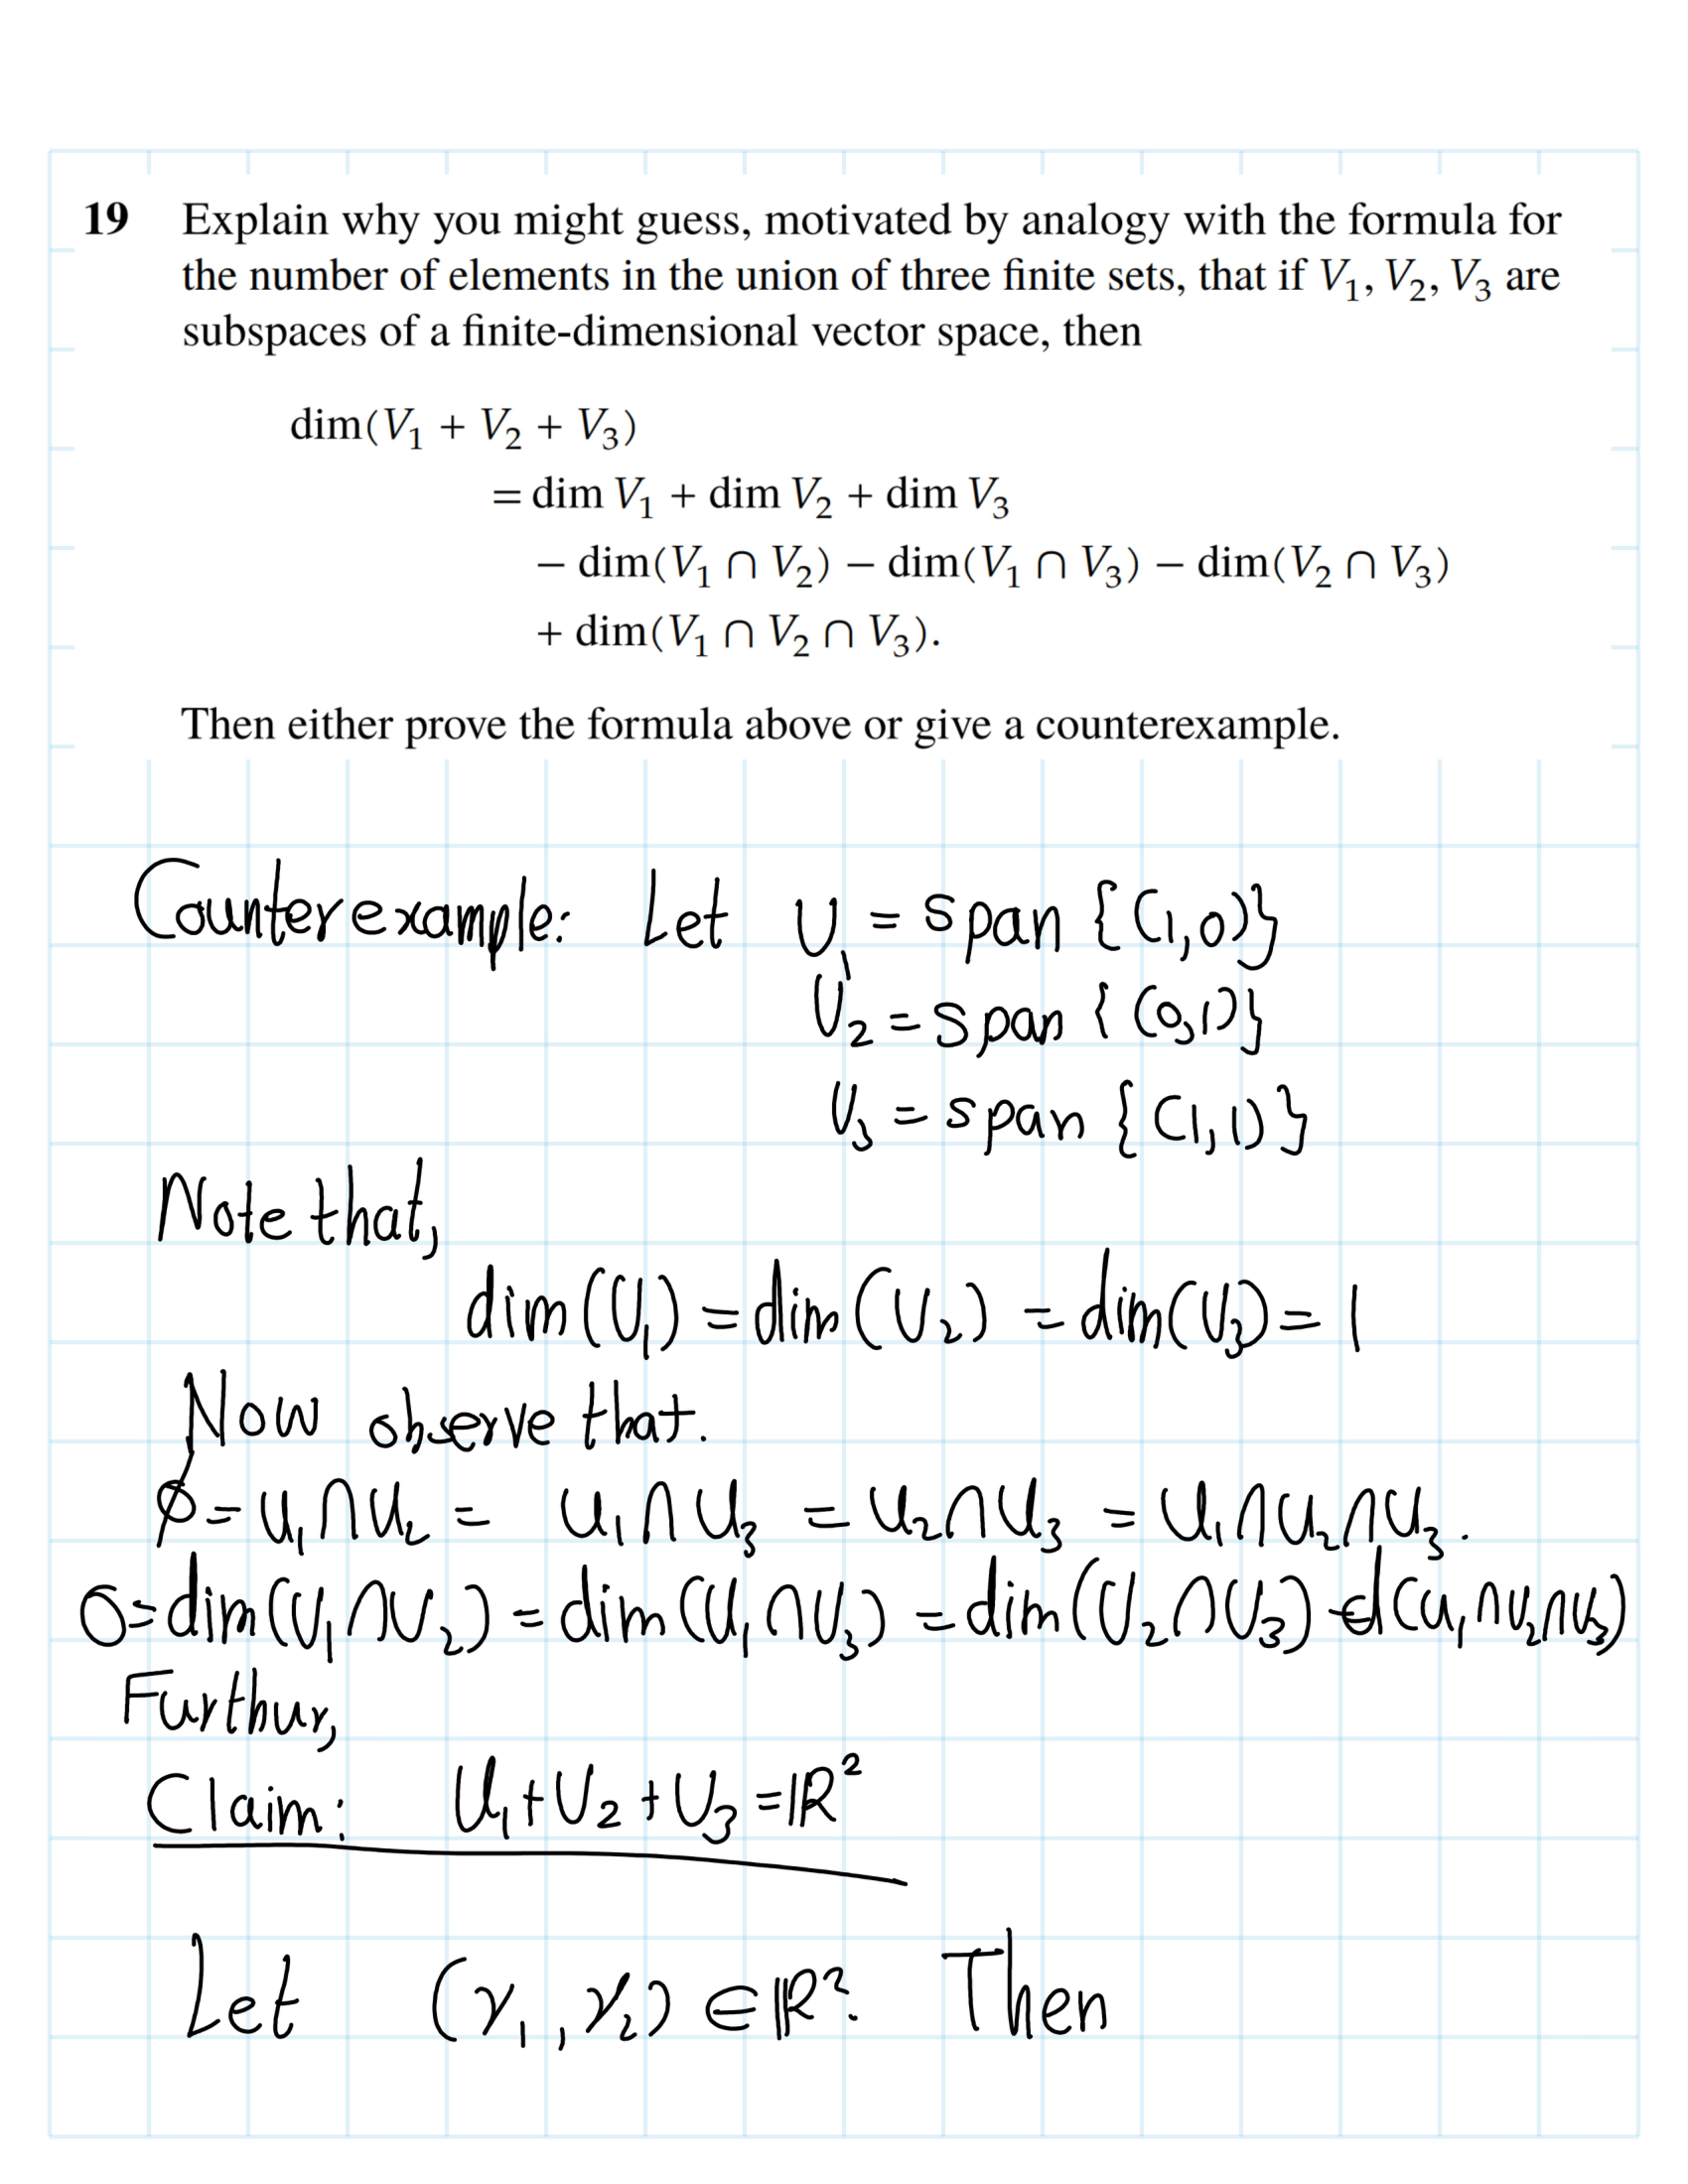 19 Explain why you might guess, motivated by analogy with the formula for
the number of elements in the union of three finite sets, that if V₁, V₂, V₃ are
subspaces of a finite-dimensional vector space, then
dim(V₁ + V₂ + V₃)
= dim V₁ + dim V₂ + dim V₃
− dim(V₁ ∩ V₂) − dim(V₁ ∩ V₃) − dim(V₂ ∩ V₃)
+ dim(V₁ ∩ V₂ ∩ V₃).
Then either prove the formula above or give a counterexample.
Counterexample: Let U₁ = span {(1,0)}
U₂ = span {(0,1)}
U₃ = span {(1,1)}
Note that,
dim(U₁) = dim(U₂) = dim(U₃) = 1
Now observe that.
∅ = U₁∩U₂ = U₁∩U₃ = U₂∩U₃ = U₁∩U₂∩U₃.
0 = dim(U₁∩U₂) = dim(U₁∩U₃) = dim(U₂∩U₃) = d(U₁∩U₂∩U₃)
Furthur,
Claim: U₁+U₂+U₃ = ℝ²
Let (γ₁, γ₂) ∈ ℝ². Then